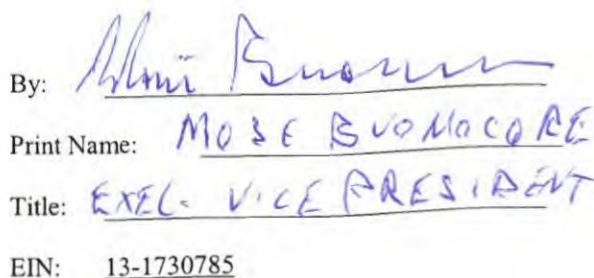 By:
Print Name: MOSE BUONOCORE
Title: EXEC. VICE PRESIDENT
EIN: 13-1730785